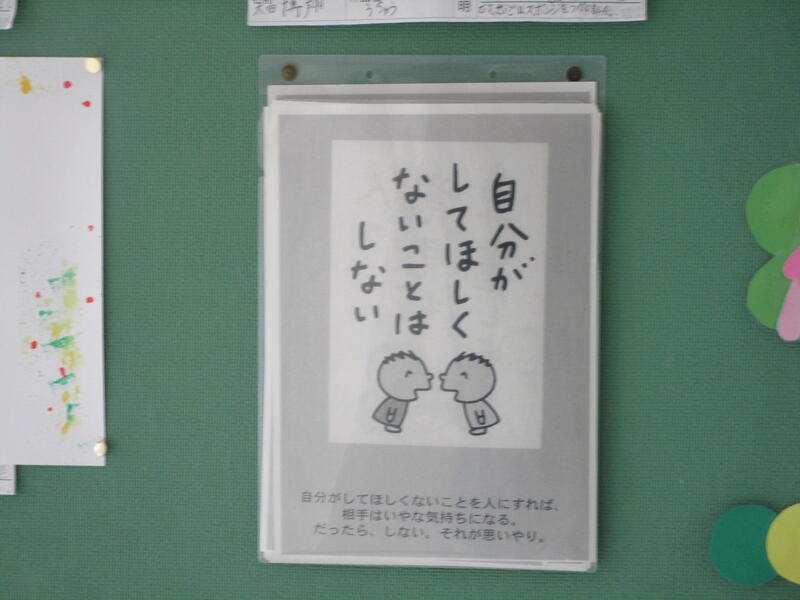 自分が
してほしく
ないことは
しない
自分がしてほしくないことを人にすれば、
相手はいやな気持ちになる。
だったら、しない。それが思いやり。